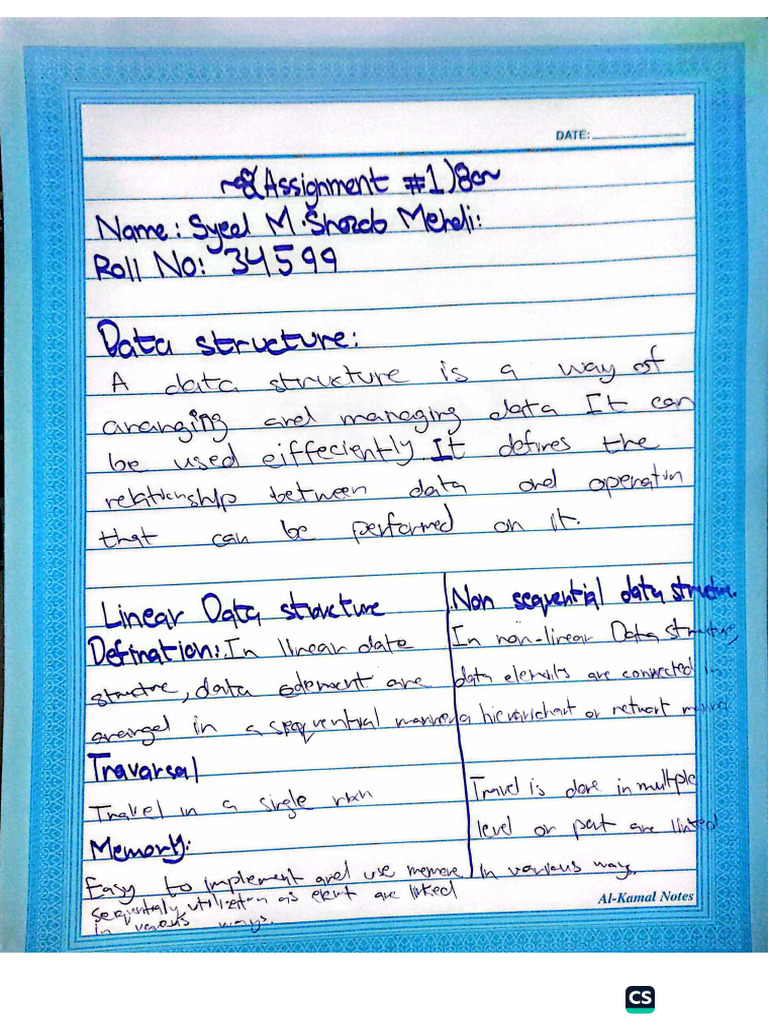 DATE:
Assignment #1
Name: Syeel M. Shozab Mehdi:
Roll No: 34599
Data structure:
A data structure is a way of
aranging and managing data It can
be used eiffeciently. It defines the
relationship between data and operation
that can be performed on it.
Linear Data structure
Defination: In linear data
structure, data edement are
arranged in a sequential manner
Travarsal
Travel in a single run
Memory:
Easy to implement and use memore
sequentialy utilization as are linked
in various ways.
Non sequential data structure.
In non-linear Data structure,
data elements are connected in
a hierarichart or network
Travel is done in multiple
level or part are linked
in various way.
Al-Kamal Notes
CS